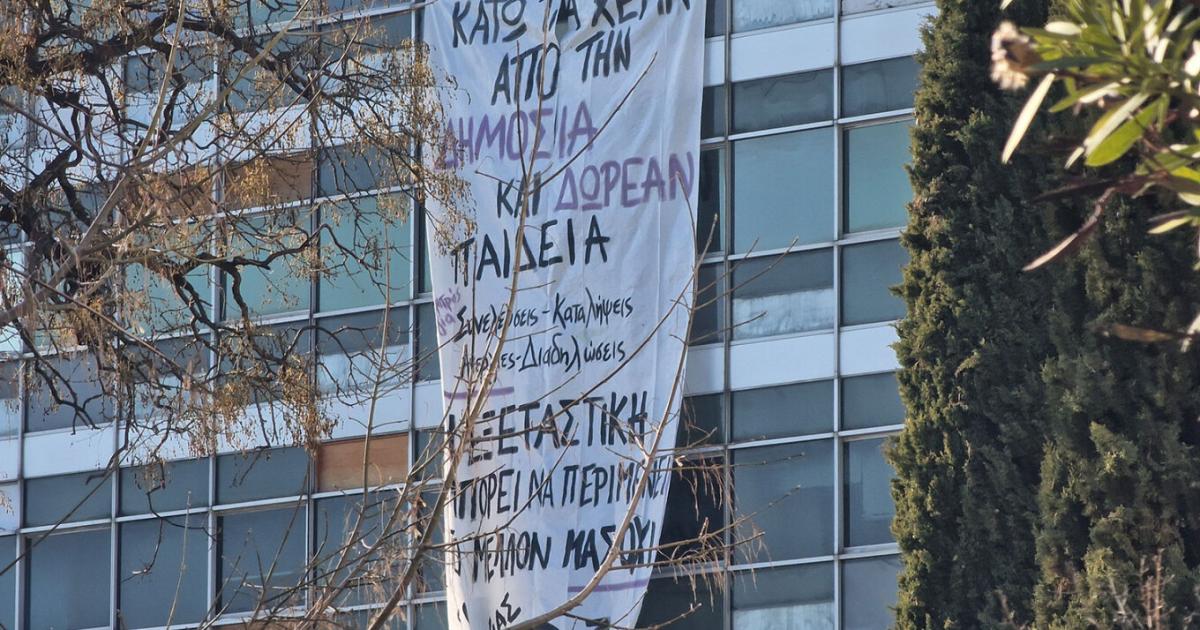 ΚΑΤΩ ΤΑ ΧΕΡΙΑ
ΑΠΟ ΤΗΝ
ΔΗΜΟΣΙΑ
ΚΑΙ ΔΩΡΕΑΝ
ΠΑΙΔΕΙΑ
Συνελεύσεις - Καταλήψεις
Απεργίες - Διαδηλώσεις
Η ΕΞΕΤΑΣΤΙΚΗ
ΜΠΟΡΕΙ ΝΑ ΠΕΡΙΜΕΝΕΙ
ΤΟ ΜΕΛΛΟΝ ΜΑΣ ΟΧΙ